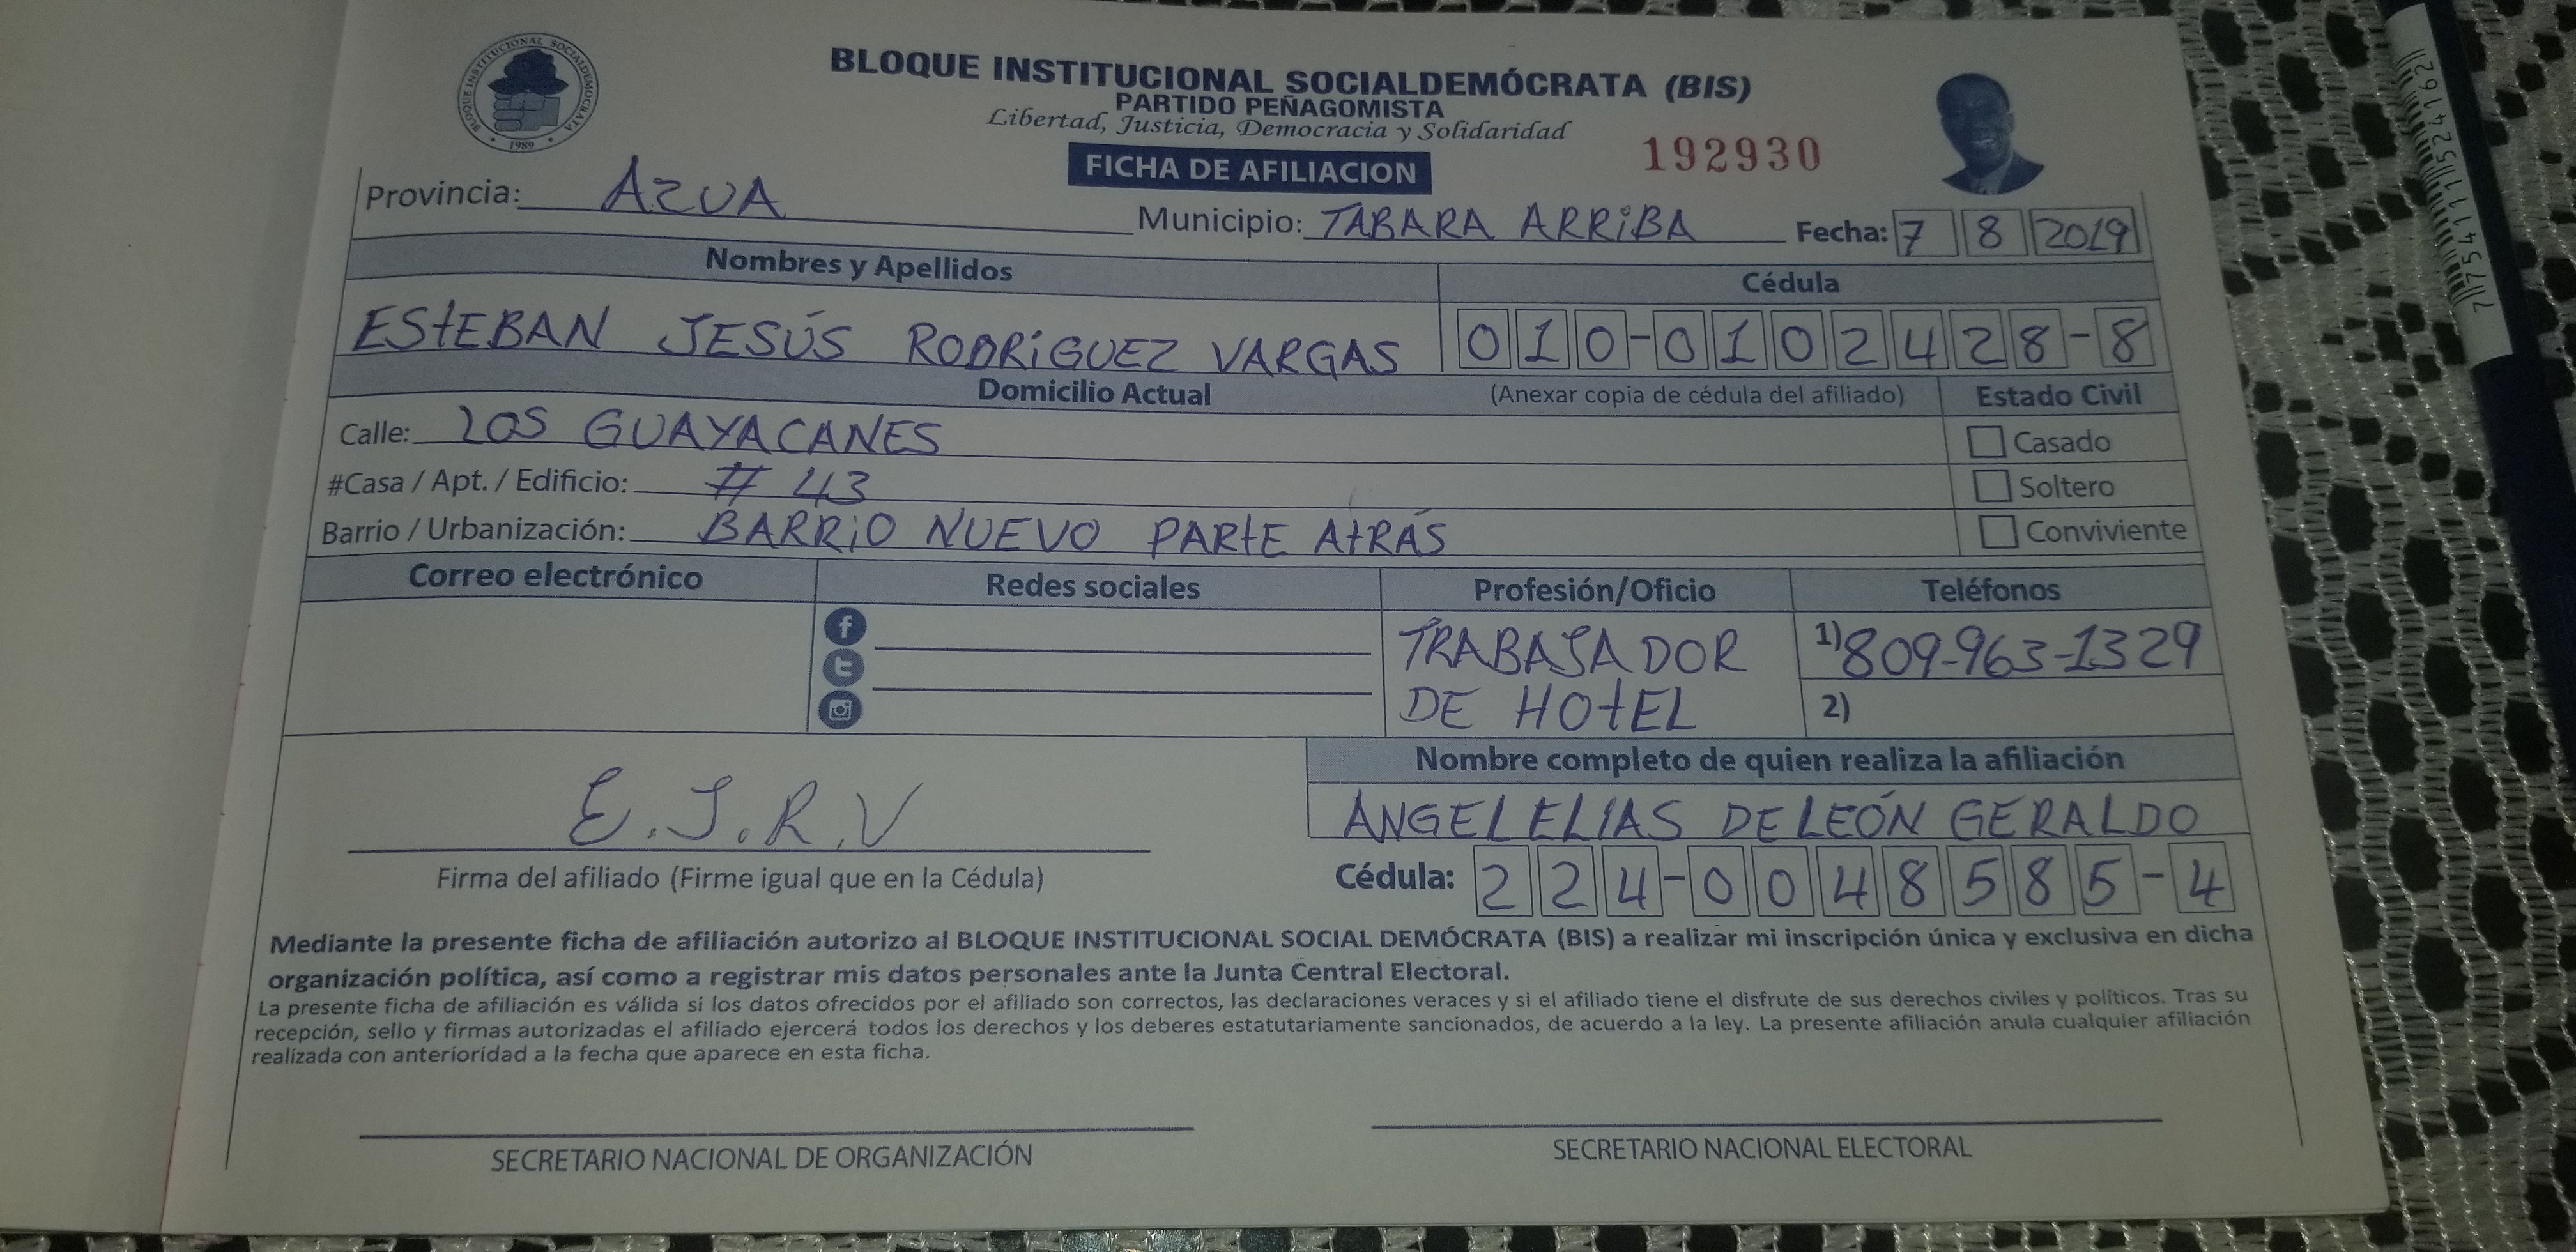 BLOQUE INSTITUCIONAL SOCIALDEMOCRATA
1989
BLOQUE INSTITUCIONAL SOCIALDEMÓCRATA (BIS)
PARTIDO PEÑAGOMISTA
Libertad, Justicia, Democracia y Solidaridad
FICHA DE AFILIACION
192930
Provincia: AZUA
Municipio: TABARA ARRiBA
Fecha: 7 8 2019
Nombres y Apellidos
Cédula
EStEBAN JESÚS RODRíGUEZ VARGAS
010-0102428-8
Domicilio Actual
(Anexar copia de cédula del afiliado)
Estado Civil
Calle: LOS GUAYACANES
Casado
#Casa / Apt. / Edificio: # 43
Soltero
Barrio / Urbanización: BARRiO NUEVO PARtE AtRÁS
Conviviente
Correo electrónico
Redes sociales
Profesión/Oficio
Teléfonos
TRABAJADOR
DE HOtEL
1) 809-963-1329
2)
Nombre completo de quien realiza la afiliación
E.J.R.V
ANGEL ELIAS DE LEÓN GERALDO
Firma del afiliado (Firme igual que en la Cédula)
Cédula: 224-0048585-4
Mediante la presente ficha de afiliación autorizo al BLOQUE INSTITUCIONAL SOCIAL DEMÓCRATA (BIS) a realizar mi inscripción única y exclusiva en dicha
organización política, así como a registrar mis datos personales ante la Junta Central Electoral.
La presente ficha de afiliación es válida si los datos ofrecidos por el afiliado son correctos, las declaraciones veraces y si el afiliado tiene el disfrute de sus derechos civiles y políticos. Tras su
recepción, sello y firmas autorizadas el afiliado ejercerá todos los derechos y los deberes estatutariamente sancionados, de acuerdo a la ley. La presente afiliación anula cualquier afiliación
realizada con anterioridad a la fecha que aparece en esta ficha.
SECRETARIO NACIONAL DE ORGANIZACIÓN
SECRETARIO NACIONAL ELECTORAL